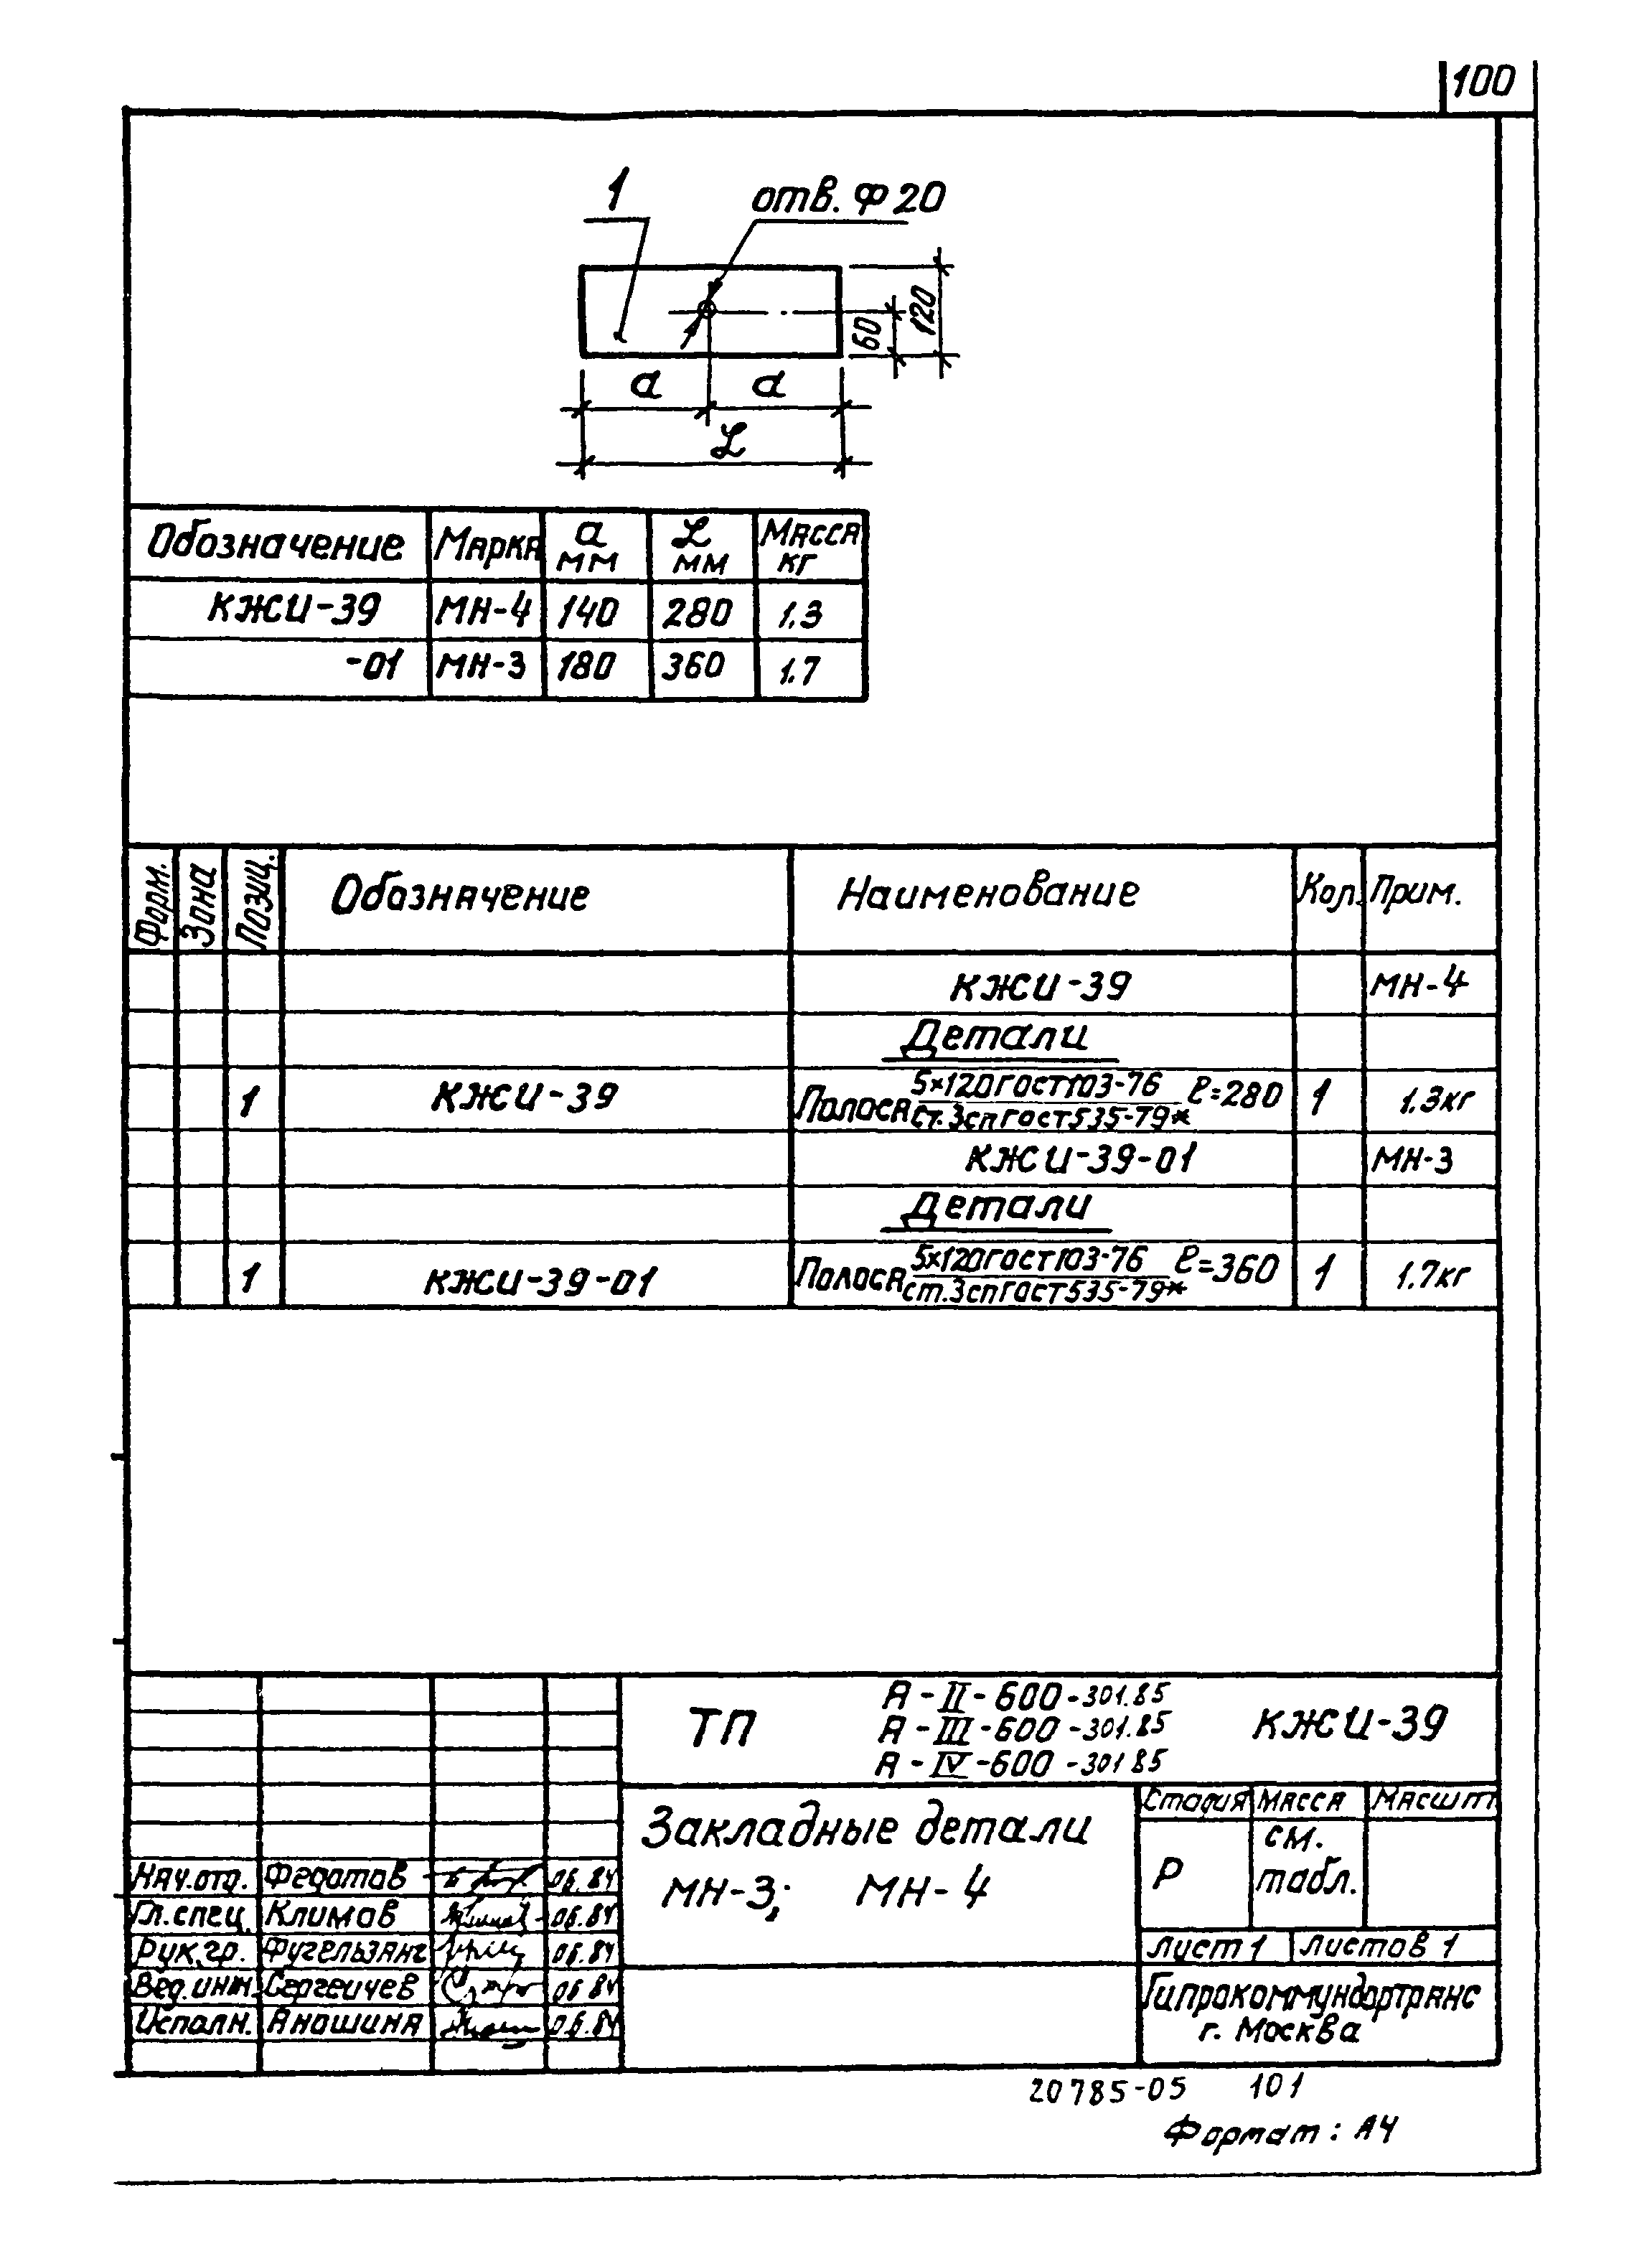 100
1
отв. Ф 20
60
120
а а
L
Обозначение Марка а мм L мм Масса кг
КЖИ-39 МН-4 140 280 1.3
-01 МН-3 180 360 1.7
Форм. Зона Позиц. Обозначение Наименование Кол. Прим.
КЖИ-39 МН-4
Детали
1 КЖИ-39 Полоса 5х120 ГОСТ 103-76 / Ст.3сп ГОСТ 535-79* ℓ=280 1 1.3кг
КЖИ-39-01 МН-3
Детали
1 КЖИ-39-01 Полоса 5х120 ГОСТ 103-76 / ст.3сп ГОСТ 535-79* ℓ=360 1 1.7кг
ТП
А-II-600-301.85
А-III-600-301.85
А-IV-600-301 85
КЖИ-39
Закладные детали
МН-3; МН-4
Стадия Масса Масшт
Р см. табл.
Лист 1 Листов 1
Гипрокоммундортранс
г. Москва
Нач.отд. Федотов 06.84
Гл.спец. Климов 06.84
Рук.гр. Фугельзанг 06.84
Вед.инж. Сергеичев 06 84
Исполн. Аношина 06.84
20785-05 101
Формат: А4